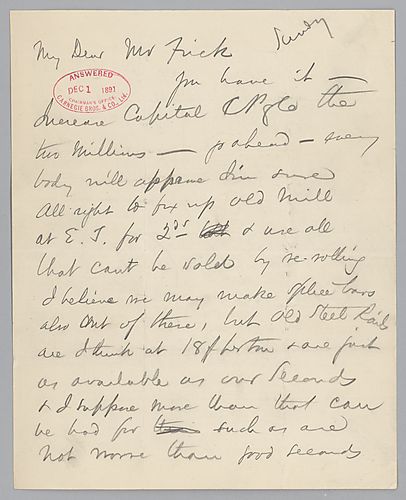 Sunday
My Dear Mr Frick
ANSWERED
DEC 1 1891
CHAIRMAN'S OFFICE,
CARNEGIE BROS. & CO., Ltd.
you have it —
Increase Capital C P & Co the
two Millions — go ahead — every
body will approve I'm sure
All right to fix up old Mill
at E. T. for 2ds & use all
that cant be sold by re-rolling
I believe we may make splice bars
also out of these, but old Steel Rails
are I think at 18$ per ton & are just
as available as our Seconds
& I suppose more than that can
be had for such as are
not worse than good seconds